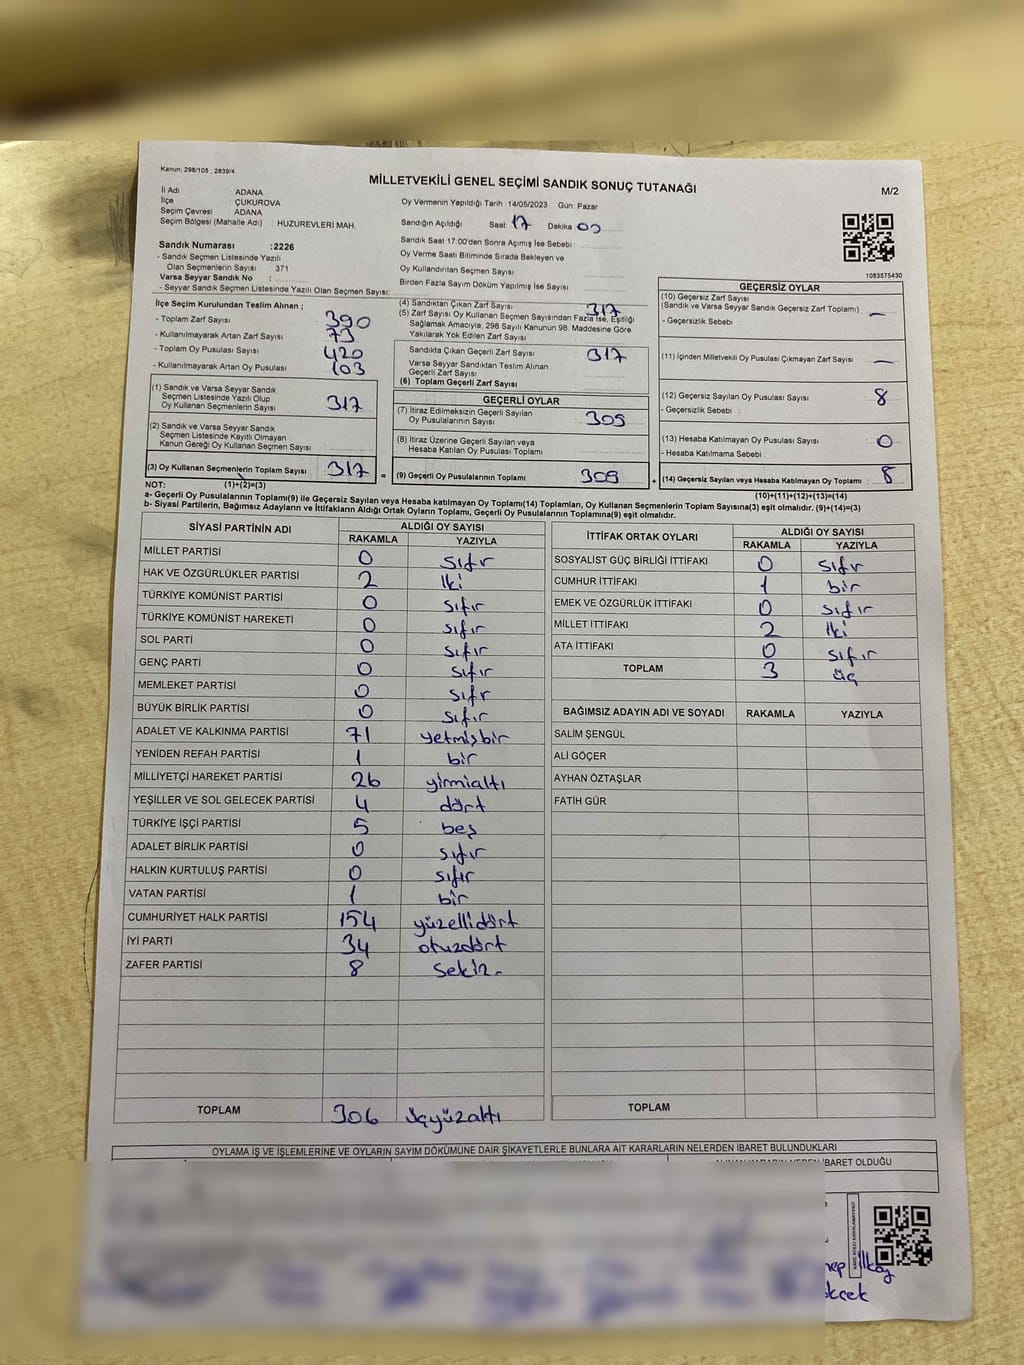 Kanun: 298/105 , 2839/4
MİLLETVEKİLİ GENEL SEÇİMİ SANDIK SONUÇ TUTANAĞI
M/2
İl Adı ADANA
İlçe ÇUKUROVA
Seçim Çevresi ADANA
Seçim Bölgesi (Mahalle Adı) : HUZUREVLERİ MAH.
Oy Vermenin Yapıldığı Tarih :14/05/2023 Gün: Pazar
Sandığın Açıldığı Saat 17 Dakika 00
Sandık Saat 17:00'den Sonra Açımış İse Sebebi :
Oy Verme Saati Bitiminde Sırada Bekleyen ve
Oy Kullandırılan Seçmen Sayısı
Birden Fazla Sayım Döküm Yapılmış İse Sayısı
1083575430
Sandık Numarası :2226
- Sandık Seçmen Listesinde Yazılı
Olan Seçmenlerin Sayısı : 371
Varsa Seyyar Sandık No :
- Seyyar Sandık Seçmen Listesinde Yazılı Olan Seçmen Sayısı:
İlçe Seçim Kurulundan Teslim Alınan ;
- Toplam Zarf Sayısı 390
- Kullanılmayarak Artan Zarf Sayısı 73
- Toplam Oy Pusulası Sayısı 420
- Kullanılmayarak Artan Oy Pusulası 103
(1) Sandık ve Varsa Seyyar Sandık
Seçmen Listesinde Yazılı Olup
Oy Kullanan Seçmenlerin Sayısı 317
(2) Sandık ve Varsa Seyyar Sandık
Seçmen Listesinde Kayıtlı Olmayan
Kanun Gereği Oy Kullanan Seçmen Sayısı :
(3) Oy Kullanan Seçmenlerin Toplam Sayısı 317 =
(4) Sandıktan Çıkan Zarf Sayısı 317
(5) Zarf Sayısı Oy Kullanan Seçmen Sayısından Fazla İse, Eşitliği
Sağlamak Amacıyla, 298 Sayılı Kanunun 98. Maddesine Göre
Yakılarak Yok Edilen Zarf Sayısı :
Sandıkta Çıkan Geçerli Zarf Sayısı 317
Varsa Seyyar Sandıktan Teslim Alınan
Geçerli Zarf Sayısı
(6) Toplam Geçerli Zarf Sayısı
GEÇERLİ OYLAR
(7) İtiraz Edilmeksizin Geçerli Sayılan
Oy Pusulalarının Sayısı : 309
(8) İtiraz Üzerine Geçerli Sayılan veya
Hesaba Katılan Oy Pusulası Toplamı
(9) Geçerli Oy Pusulalarının Toplamı 309 +
GEÇERSİZ OYLAR
(10) Geçersiz Zarf Sayısı
(Sandık ve Varsa Seyyar Sandık Geçersiz Zarf Toplamı) —
- Geçersizlik Sebebi
(11) İçinden Milletvekili Oy Pusulası Çıkmayan Zarf Sayısı —
(12) Geçersiz Sayılan Oy Pusulası Sayısı 8
- Geçersizlik Sebebi :
(13) Hesaba Katılmayan Oy Pusulası Sayısı 0
- Hesaba Katılmama Sebebi :
(14) Geçersiz Sayılan veya Hesaba Katılmayan Oy Toplamı : 8
NOT: (1)+(2)=(3) (10)+(11)+(12)+(13)=(14)
a- Geçerli Oy Pusulalarının Toplamı(9) ile Geçersiz Sayılan veya Hesaba katılmayan Oy Toplamı(14) Toplamları, Oy Kullanan Seçmenlerin Toplam Sayısına(3) eşit olmalıdır. (9)+(14)=(3)
b- Siyasi Partilerin, Bağımsız Adayların ve İttifakların Aldığı Ortak Oyların Toplamı, Geçerli Oy Pusulalarının Toplamına(9) eşit olmalıdır.
SİYASİ PARTİNİN ADI ALDIĞI OY SAYISI
RAKAMLA YAZIYLA
MİLLET PARTİSİ 0 sıfır
HAK VE ÖZGÜRLÜKLER PARTİSİ 2 iki
TÜRKİYE KOMÜNİST PARTİSİ 0 sıfır
TÜRKİYE KOMÜNİST HAREKETİ 0 sıfır
SOL PARTİ 0 sıfır
GENÇ PARTİ 0 sıfır
MEMLEKET PARTİSİ 0 sıfır
BÜYÜK BİRLİK PARTİSİ 0 sıfır
ADALET VE KALKINMA PARTİSİ 71 yetmişbir
YENİDEN REFAH PARTİSİ 1 bir
MİLLİYETÇİ HAREKET PARTİSİ 26 yirmialtı
YEŞİLLER VE SOL GELECEK PARTİSİ 4 dört
TÜRKİYE İŞÇİ PARTİSİ 5 beş
ADALET BİRLİK PARTİSİ 0 sıfır
HALKIN KURTULUŞ PARTİSİ 0 sıfır
VATAN PARTİSİ 1 bir
CUMHURİYET HALK PARTİSİ 154 yüzellidört
İYİ PARTİ 34 otuzdört
ZAFER PARTİSİ 8 sekiz
TOPLAM 306 üçyüzaltı
İTTİFAK ORTAK OYLARI ALDIĞI OY SAYISI
RAKAMLA YAZIYLA
SOSYALİST GÜÇ BİRLİĞİ İTTİFAKI 0 sıfır
CUMHUR İTTİFAKI 1 bir
EMEK VE ÖZGÜRLÜK İTTİFAKI 0 sıfır
MİLLET İTTİFAKI 2 iki
ATA İTTİFAKI 0 sıfır
TOPLAM 3 üç
BAĞIMSIZ ADAYIN ADI VE SOYADI RAKAMLA YAZIYLA
SALİM ŞENGÜL
ALİ GÖÇER
AYHAN ÖZTAŞLAR
FATİH GÜR
TOPLAM
OYLAMA İŞ VE İŞLEMLERİNE VE OYLARIN SAYIM DÖKÜMÜNE DAİR ŞİKAYETLERLE BUNLARA AİT KARARLARIN NELERDEN İBARET BULUNDUKLARI
İBARET OLDUĞU